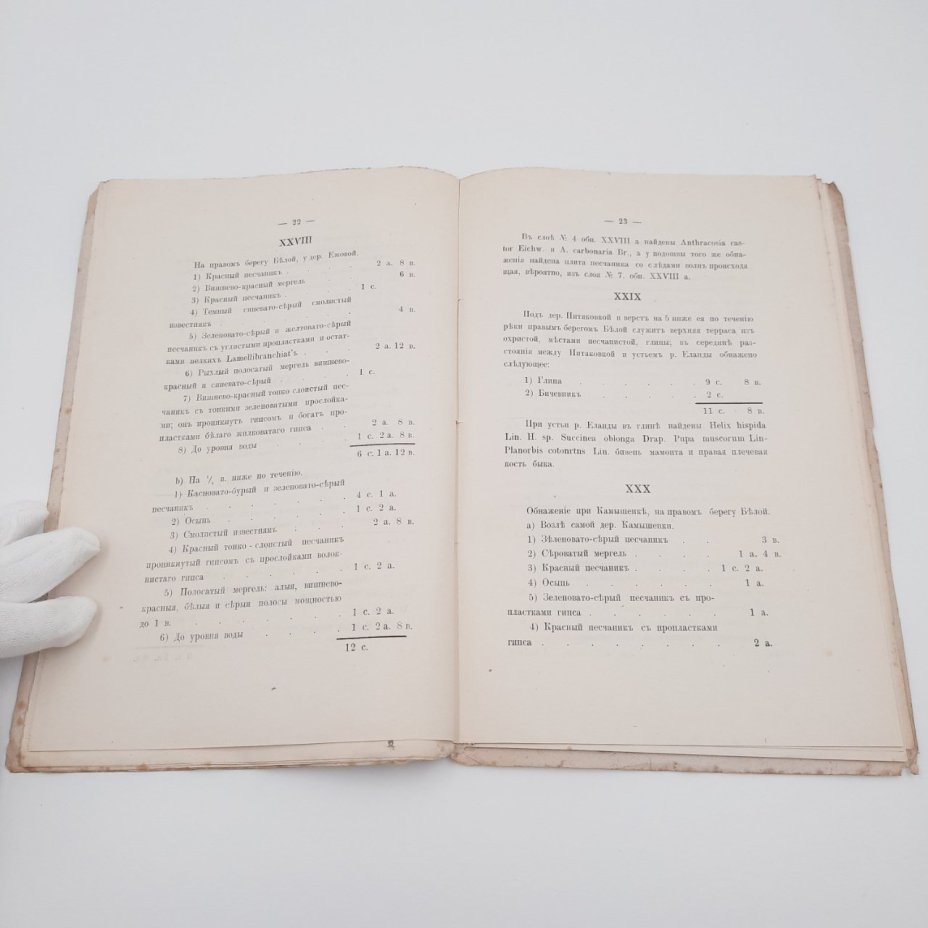 — 22 —
XXVIII
На правомъ берегу Бѣлой, у дер. Ежовой.
1) Красный песчаникъ . . . 2 а. 8 в.
2) Вишнево-красный мергель . . 6 в.
3) Красный песчаникъ . . . 1 с.
4) Темный синевато-сѣрый смолистый
известнякъ . . . . . 4 в.
5) Зеленовато-сѣрый и желтовато-сѣрый
песчаникъ с углистыми пропластками и остат-
ками мелкихъ Lamellibranchiat'ъ . . . 2 а. 12 в.
6) Рыхлый полосатый мергель вишнево-
красный и синевато-сѣрый . . . 1 с.
7) Вишнево-красный тонко слоистый пес-
чаникъ съ тонкими зеленоватыми прослойка-
ми; онъ проникнутъ гипсомъ и богатъ про-
пластками бѣлаго жилковатаго гипса . . 2 а. 8 в.
8) До уровня воды . . . 1 с. 2 а. 8 в.
6 с. 1 а. 12 в.
b) На в. ниже по теченію.
1) Красновато-бурый и зеленовато-сѣрый
песчаникъ . . . . . 4 с. 1 а.
2) Осыпь . . . . . 1 с. 2 а.
3) Смолистый известнякъ . . . 2 а. 8 в.
4) Красный тонко-слоистый песчаникъ
проникнутый гипсомъ съ прослойками волок-
нистаго гипса . . . . 1 с. 2 а.
5) Полосатый мергель: алыя, вишнево-
красныя, бѣлыя и сѣрыя полосы мощностью
до 1 в. . . . . . 1 с. 2 а.
6) До уровня воды . . . 1 с. 2 а. 8 в.
12 с.
— 23 —
Въ слоѣ № 4 обн. XXVIII а найдены Anthracosia cas-
tor Eichw. и A. carbonaria Br., а у подошвы того же обна-
женія найдена плита песчаника со слѣдами волнъ происходя
щая, вѣроятно, изъ слоя № 7. обн. XXVIII а.
XXIX
Подъ дер. Пятаковкой и верстъ на 5 ниже ея по теченію
рѣки правымъ берегомъ Бѣлой служитъ верхняя терраса изъ
охристой, мѣстами песчанистой, глины, въ серединѣ раз-
стоянія между Пятаковкой и устьемъ р. Еланды обнажено
слѣдующее:
1) Глина . . . . . . 9 с. 8 в.
2) Бичевникъ . . . . . 2 с.
11 с. 8 в.
При устьи р. Еланды въ глинѣ найдены Helix hispida
Lin. H. sp. Succinea oblonga Drap. Pupa muscorum Lin-
Planorbis cotonrtus Lin. бивень мамонта и правая плечевая
кость быка.
XXX
Обнаженіе при Камышенкѣ, на правомъ берегу Бѣлой.
а) Возлѣ самой дер. Камышенки.
1) Зѣленовато-сѣрый песчаникъ . . . 3 в.
2) Сѣроватый мергель . . . . 1 а. 4 в.
3) Красный песчаникъ . . . . 1 с. 2 а.
4) Осыпь . . . . . . 1 а.
5) Зеленовато-сѣрый песчаникъ съ про-
пластками гипса . . . . . 1 а.
4) Красный песчаникъ съ пропластками
гипса . . . . . . . . 2 а.